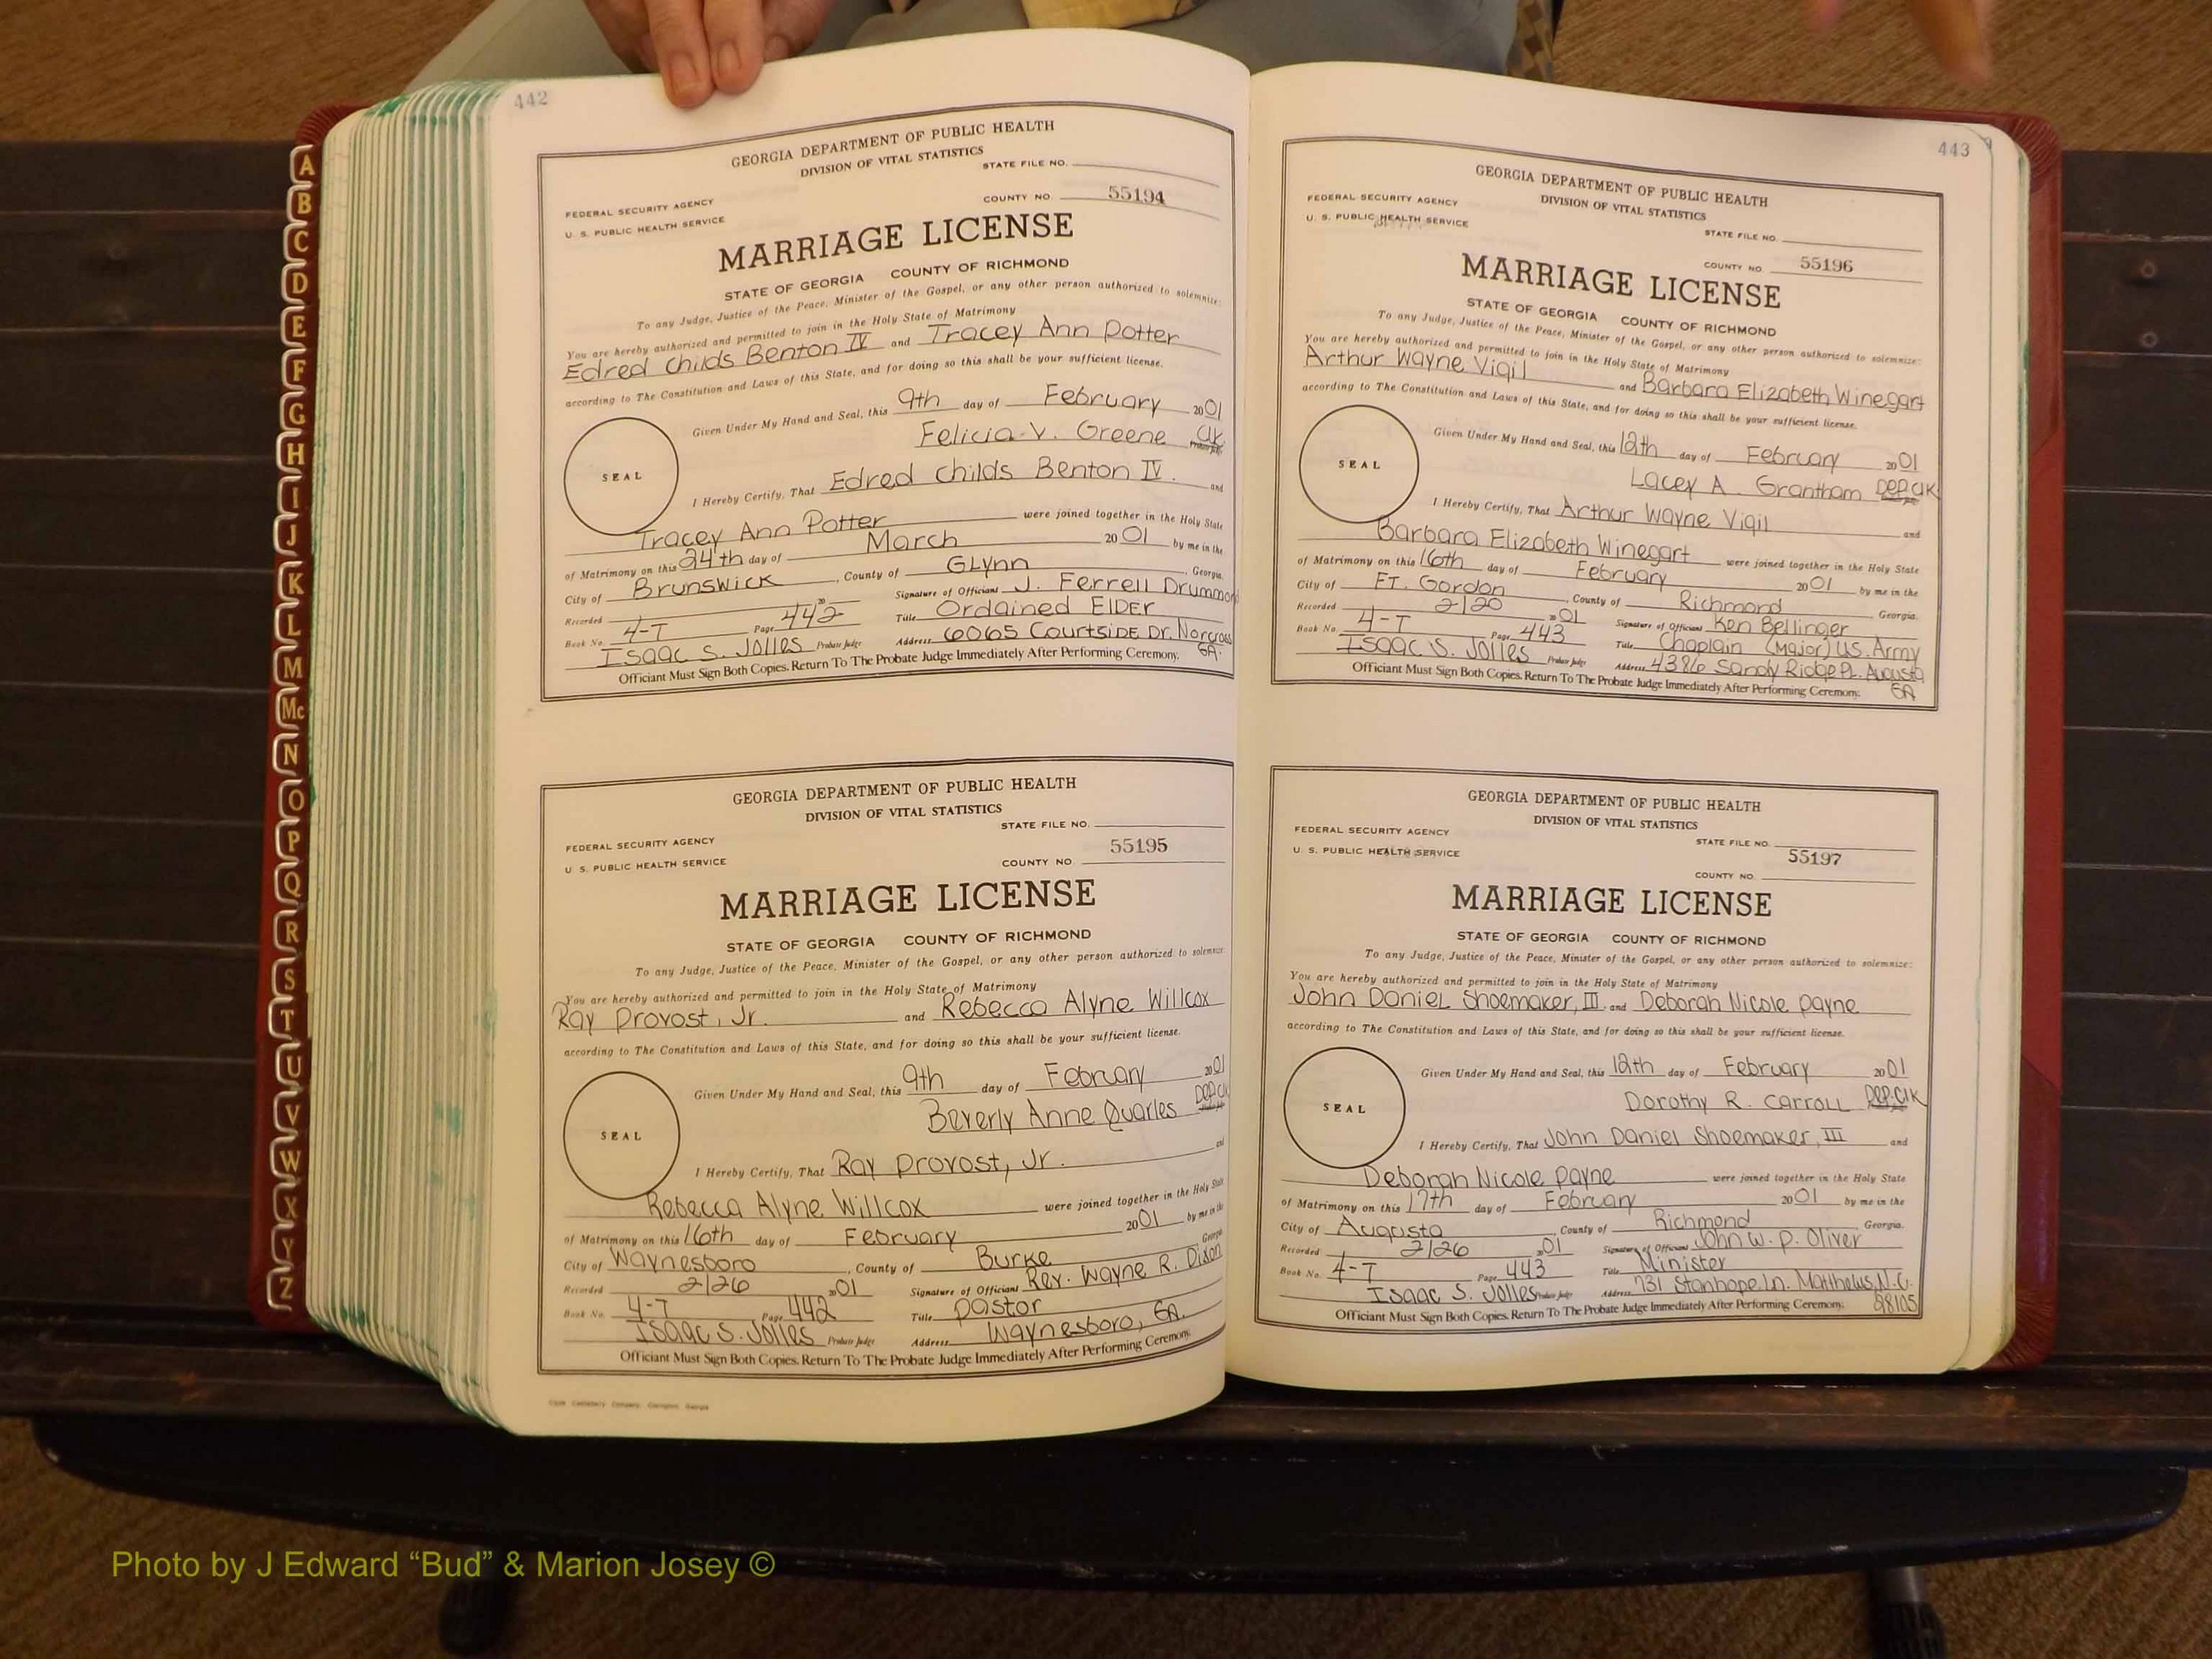 A
B
C
D
E
F
G
H
I
J
K
L
M
Mc
N
O
P
Q
R
S
T
U
V
W
X
Y
Z
442
GEORGIA DEPARTMENT OF PUBLIC HEALTH
DIVISION OF VITAL STATISTICS
STATE FILE NO.
FEDERAL SECURITY AGENCY
COUNTY NO. 55194
U. S. PUBLIC HEALTH SERVICE
MARRIAGE LICENSE
STATE OF GEORGIA COUNTY OF RICHMOND
To any Judge, Justice of the Peace, Minister of the Gospel, or any other person authorized to solemnize:
You are hereby authorized and permitted to join in the Holy State of Matrimony
Edred Childs Benton IV and Tracey Ann Potter
according to The Constitution and Laws of this State, and for doing so this shall be your sufficient license.
Given Under My Hand and Seal, this 9th day of February 2001
Felicia V. Greene Clk.
SEAL
I Hereby Certify, That Edred Childs Benton IV. and
Tracey Ann Potter were joined together in the Holy State
of Matrimony on this 24th day of March 2001 by me in the
City of Brunswick, County of Glynn, Georgia.
Recorded 20 Signature of Officiant J. Ferrell Drummond
Book No. 4-T Page 442 Title Ordained Elder
Isaac S. Jolles Probate Judge Address 6065 Courtside Dr. Norcross GA.
Officiant Must Sign Both Copies. Return To The Probate Judge Immediately After Performing Ceremony.
GEORGIA DEPARTMENT OF PUBLIC HEALTH
DIVISION OF VITAL STATISTICS
STATE FILE NO.
FEDERAL SECURITY AGENCY
COUNTY NO. 55195
U. S. PUBLIC HEALTH SERVICE
MARRIAGE LICENSE
STATE OF GEORGIA COUNTY OF RICHMOND
To any Judge, Justice of the Peace, Minister of the Gospel, or any other person authorized to solemnize:
You are hereby authorized and permitted to join in the Holy State of Matrimony
Ray Provost, Jr. and Rebecca Alyne Willcox
according to The Constitution and Laws of this State, and for doing so this shall be your sufficient license.
Given Under My Hand and Seal, this 9th day of February 2001
Beverly Anne Quarles Dep.Clk
SEAL
I Hereby Certify, That Ray Provost, Jr. and
Rebecca Alyne Willcox were joined together in the Holy State
of Matrimony on this 16th day of February 2001 by me in the
City of Waynesboro, County of Burke Georgia
Recorded 2/26 2001 Signature of Officiant Rev. Wayne R. Dixon
Book No. 4-T Page 442 Title Pastor
Isaac S. Jolles Probate Judge Address Waynesboro, GA.
Officiant Must Sign Both Copies. Return To The Probate Judge Immediately After Performing Ceremony.
443
GEORGIA DEPARTMENT OF PUBLIC HEALTH
DIVISION OF VITAL STATISTICS
FEDERAL SECURITY AGENCY
STATE FILE NO.
U. S. PUBLIC HEALTH SERVICE
COUNTY NO. 55196
MARRIAGE LICENSE
STATE OF GEORGIA COUNTY OF RICHMOND
To any Judge, Justice of the Peace, Minister of the Gospel, or any other person authorized to solemnize:
You are hereby authorized and permitted to join in the Holy State of Matrimony
Arthur Wayne Vigil and Barbara Elizabeth Winegart
according to The Constitution and Laws of this State, and for doing so this shall be your sufficient license.
Given Under My Hand and Seal, this 12th day of February 2001
Lacey A. Grantham Dep.Clk
SEAL
I Hereby Certify, That Arthur Wayne Vigil and
Barbara Elizabeth Winegart were joined together in the Holy State
of Matrimony on this 16th day of February 2001 by me in the
City of Ft. Gordon, County of Richmond Georgia.
Recorded 2/20 2001 Signature of Officiant Ken Bellinger
Book No. 4-T Page 443 Title Chaplain (Major) U.S. Army
Isaac S. Jolles Probate Judge Address 4386 Sandy Ridge Pl. Augusta GA
Officiant Must Sign Both Copies. Return To The Probate Judge Immediately After Performing Ceremony.
GEORGIA DEPARTMENT OF PUBLIC HEALTH
DIVISION OF VITAL STATISTICS
FEDERAL SECURITY AGENCY
STATE FILE NO.
U. S. PUBLIC HEALTH SERVICE
55197
COUNTY NO.
MARRIAGE LICENSE
STATE OF GEORGIA COUNTY OF RICHMOND
To any Judge, Justice of the Peace, Minister of the Gospel, or any other person authorized to solemnize:
You are hereby authorized and permitted to join in the Holy State of Matrimony
John Daniel Shoemaker, III and Deborah Nicole Payne
according to The Constitution and Laws of this State, and for doing so this shall be your sufficient license.
Given Under My Hand and Seal, this 12th day of February 2001
Dorothy R. Carroll Dep.Clk
SEAL
I Hereby Certify, That John Daniel Shoemaker, III and
Deborah Nicole Payne were joined together in the Holy State
of Matrimony on this 17th day of February 2001 by me in the
City of Augusta, County of Richmond Georgia.
Recorded 2/26 2001 Signature of Officiant John W. P. Oliver
Book No. 4-T Page 443 Title Minister
Isaac S. Jolles Probate Judge Address 731 Stanhope Ln. Matthews, N.C. 28105
Officiant Must Sign Both Copies. Return To The Probate Judge Immediately After Performing Ceremony.
Photo by J Edward “Bud” & Marion Josey ©